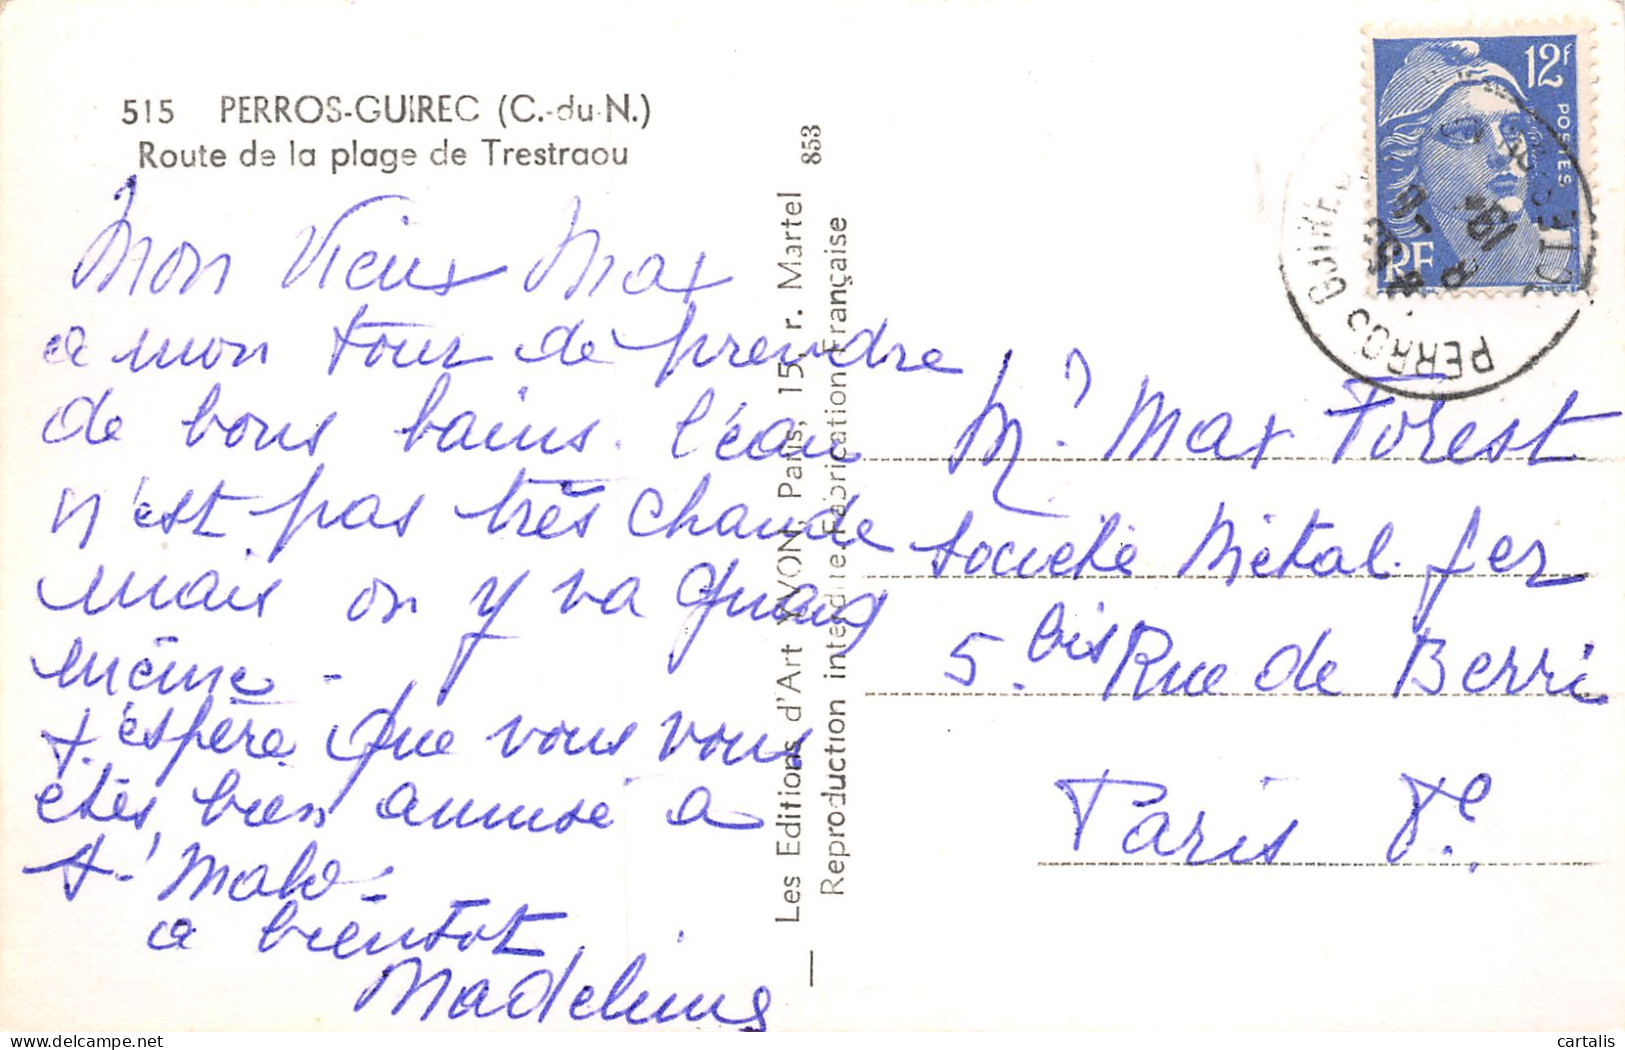 515 PERROS-GUIREC (C.-du-N.)
Route de la plage de Trestraou
Mon Vieux Max
a mon tour de prendre
de bons bains. l'eau
n'est pas très chaude
mais on y va quand
même -
J'espère que vous vous
etes bien amusé a
St Malo -
a bientot
Madeleine
Les Editions d'Art YVON, Paris, 15, r. Martel
Reproduction interdite. Fabrication Française
853
12F
POSTES
RF
PERROS GUIREC
Mr Max Forest
Société Métal. fer
5 bis Rue de Berri
Paris 8e.
cartalis